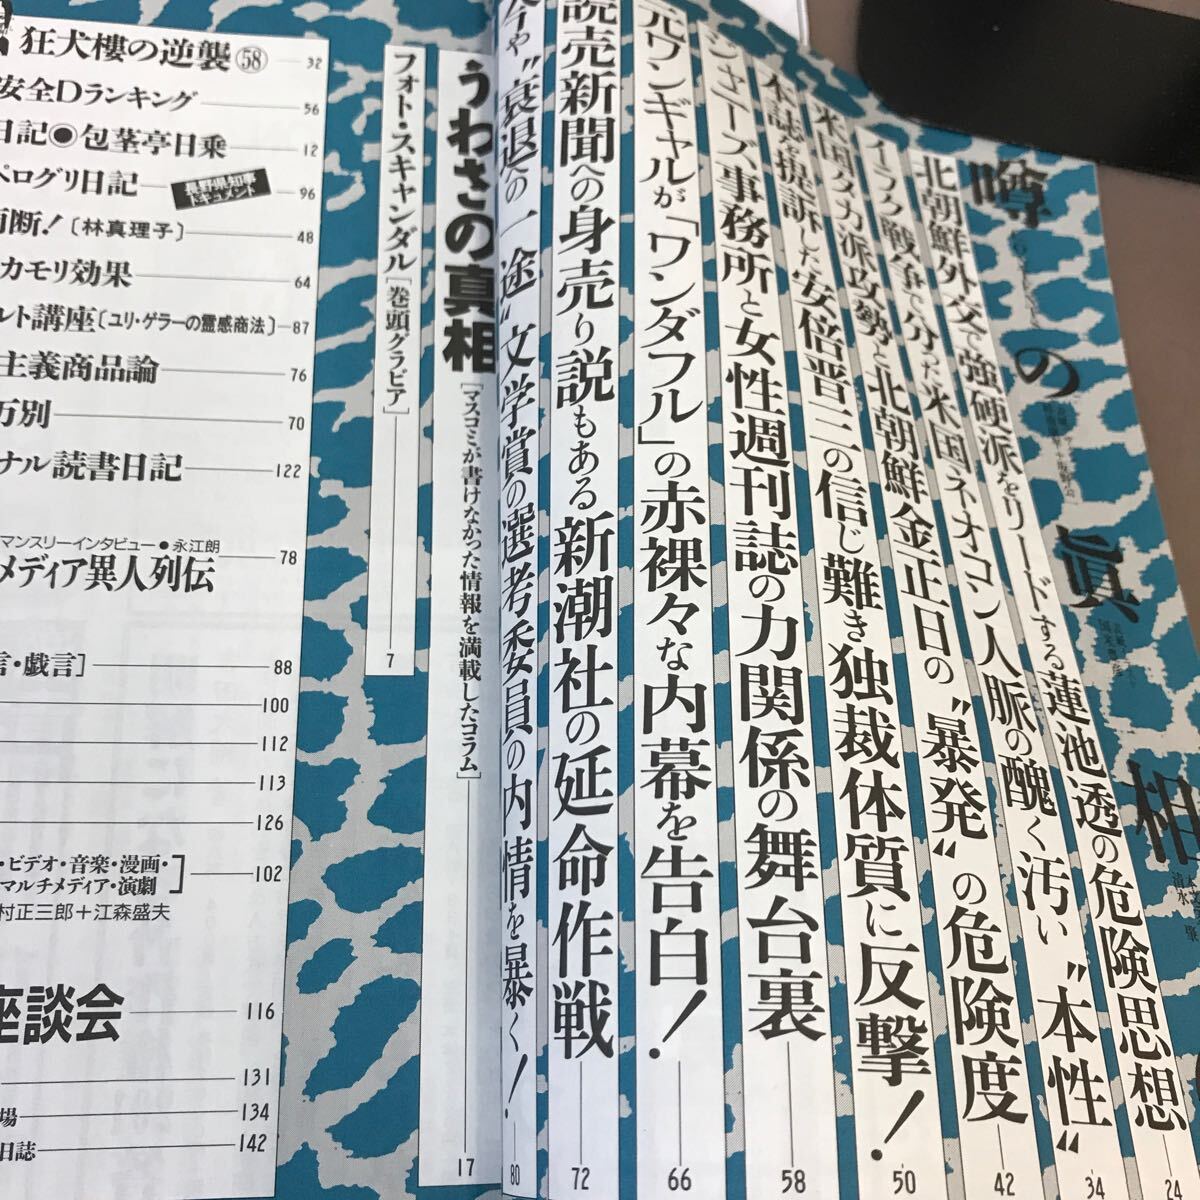 噂の眞相
北朝鮮外交で強硬派をリードする蓮池透の危険思想
24
イラク戦争で分った米国ネオコン人脈の醜く汚い〝本性〟
34
米国タカ派攻勢と北朝鮮金正日の〝暴発〟の危険度
42
本誌を提訴した安倍晋三の信じ難き独裁体質に反撃!
50
ジャニーズ事務所と女性週刊誌の力関係の舞台裏
58
元ワンギャルが「ワンダフル」の赤裸々な内幕を告白!
66
読売新聞への身売り説もある新潮社の延命作戦
72
今や〝衰退への一途〟文学賞の選考委員の内情を暴く!
80
うわさの真相[マスコミが書けなかった情報を満載したコラム]
17
フォト・スキャンダル[巻頭グラビア]
7
狂犬樓の逆襲 58 32
安全Dランキング 56
日記●包茎亭日乗 12
ペログリ日記 長野県知事ドキュメント 96
両断![林真理子] 48
カモリ効果 64
ルト講座[ユリ・ゲラーの霊感商法] 87
主義商品論 76
万別 70
ナル読書日記 122
マンスリーインタビュー●永江朗
メディア異人列伝 78
言・戯言] 88
100
112
113
126
・ビデオ・音楽・漫画・
マルチメディア・演劇] 102
村正三郎+江森盛夫
座談会 116
131
場 134
日誌 142